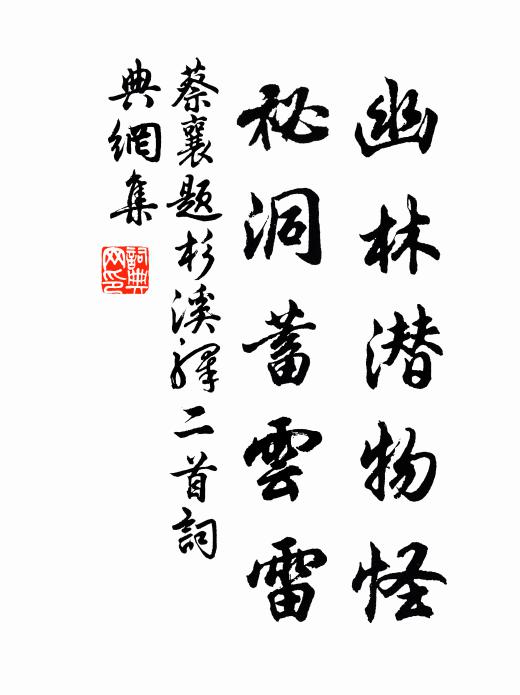 幽林潜物怪
秘洞蓄雲雷
蔡襄題杉溪驛二首詞
典網集
詞典
网印